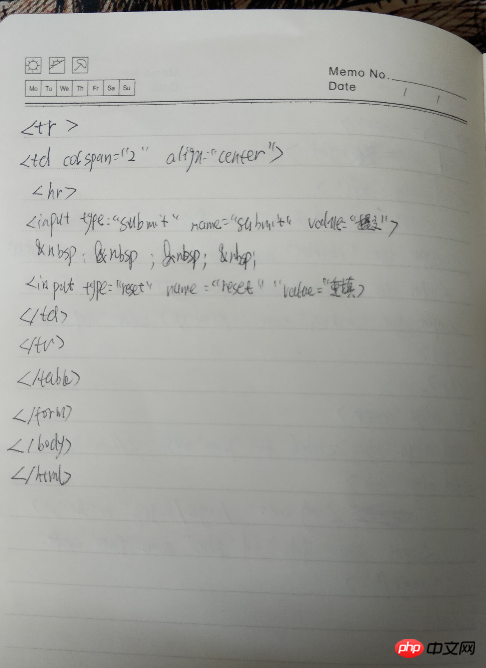 Memo No.
Mo Tu We Th Fr Sa Su
Date / /
<tr >
<td colspan="2" align="center">
<hr>
<input type="submit" name="submit" value="提交">
&nbsp; &nbsp ; &nbsp; &nbsp;
<input type="reset" name="reset" "value="重填>
</td>
</tr>
</table>
</form>
</body>
</html>
php 中文网